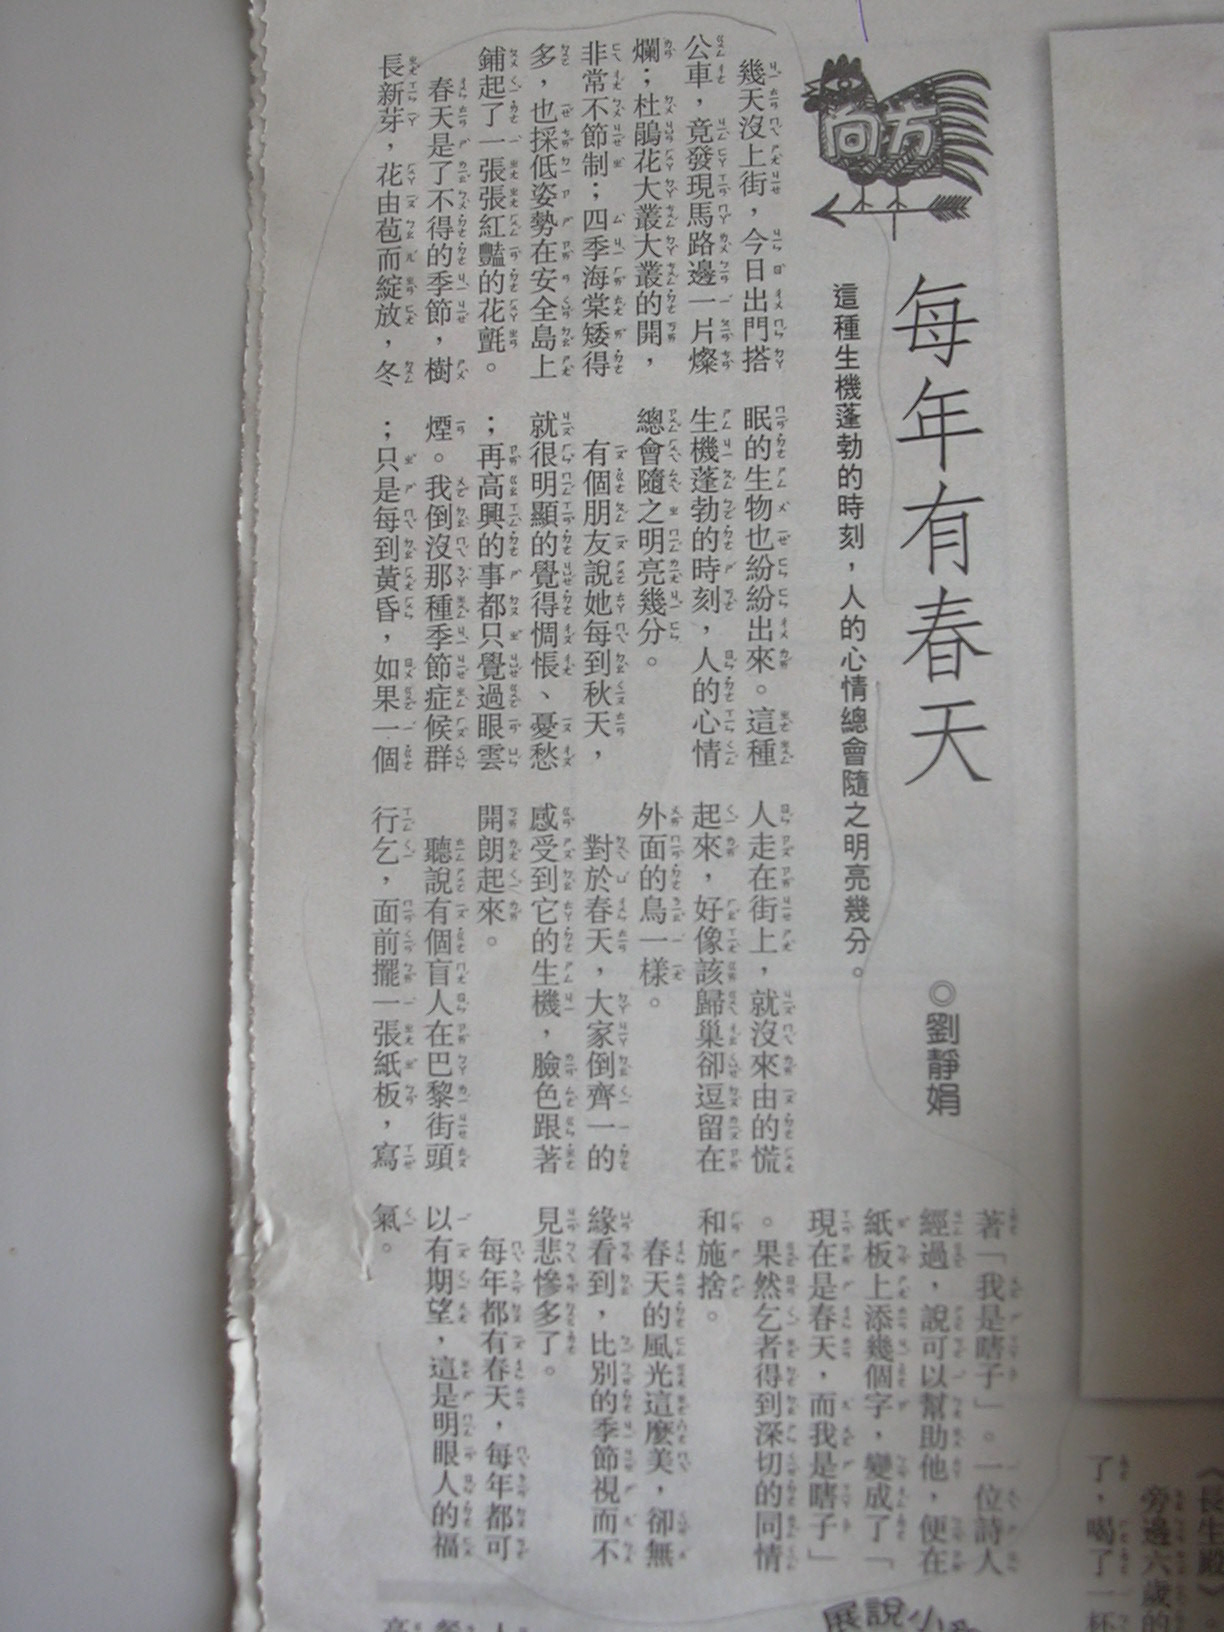 方向
每年有春天
這種生機蓬勃的時刻，人的心情總會隨之明亮幾分。
◎劉靜娟
幾天沒上街，今日出門搭
公車，竟發現馬路邊一片燦
爛；杜鵑花大叢大叢的開，
非常不節制；四季海棠矮得
多，也採低姿勢在安全島上
鋪起了一張張紅豔的花氈。
春天是了不得的季節，樹
長新芽，花由苞而綻放，冬
眠的生物也紛紛出來。這種
生機蓬勃的時刻，人的心情
總會隨之明亮幾分。
有個朋友說她每到秋天，
就很明顯的覺得惆悵、憂愁
；再高興的事都只覺過眼雲
煙。我倒沒那種季節症候群
；只是每到黃昏，如果一個
人走在街上，就沒來由的慌
起來，好像該歸巢卻逗留在
外面的鳥一樣。
對於春天，大家倒齊一的
感受到它的生機，臉色跟著
開朗起來。
聽說有個盲人在巴黎街頭
行乞，面前擺一張紙板，寫
著「我是瞎子」。一位詩人
經過，說可以幫助他，便在
紙板上添幾個字，變成了「
現在是春天，而我是瞎子」
。果然乞者得到深切的同情
和施捨。
春天的風光這麼美，卻無
緣看到，比別的季節視而不
見悲慘多了。
每年都有春天，每年都可
以有期望，這是明眼人的福
氣。
《長生殿》
旁邊六歲的
了，喝了一杯
小
說
展